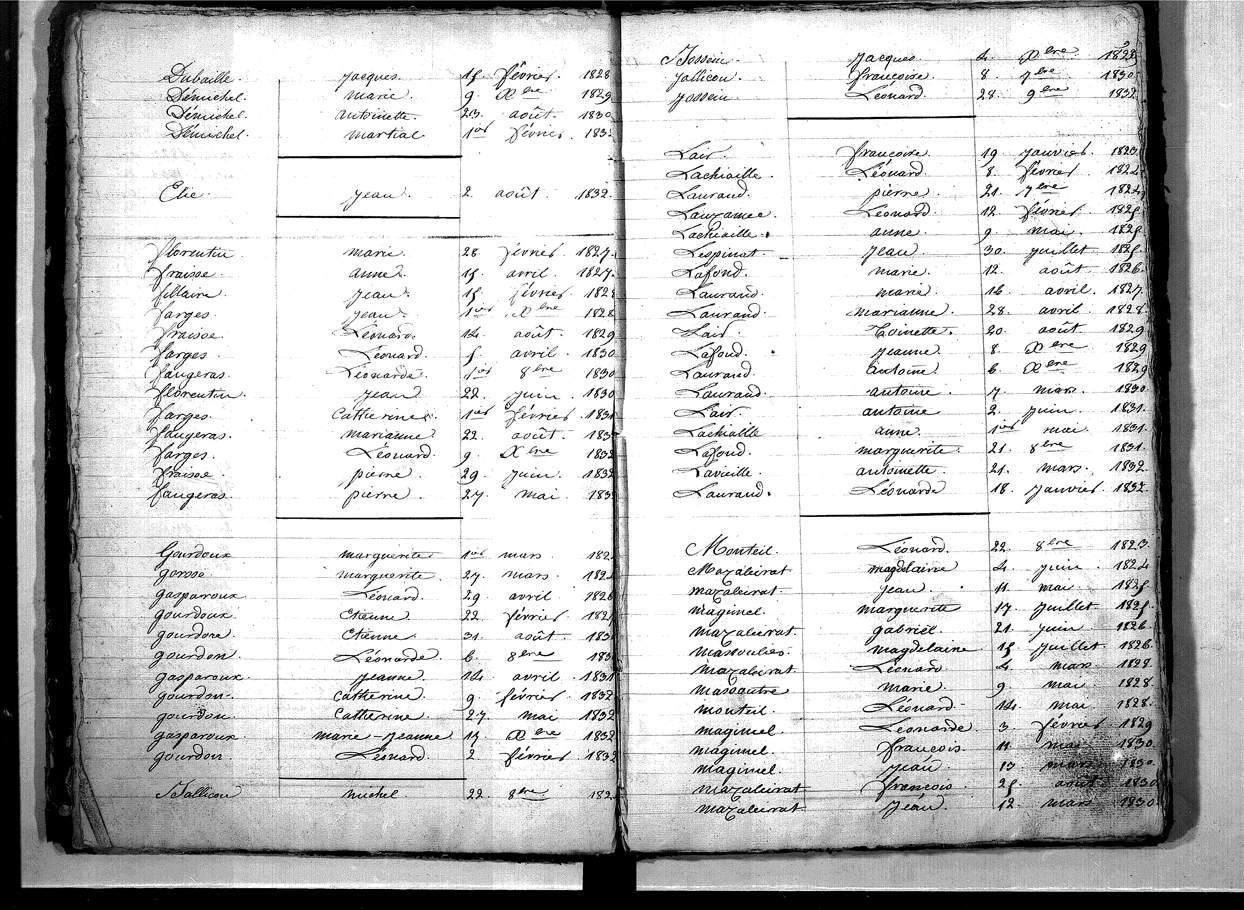 Dubaille. Jacques. 15 février. 1828
Démichel. marie. 9. Xbre 1829
Démichel. antoinette. 23. août. 1830
Démichel. martial 1er février. 183
Elie. Jean. 2. août. 1832.
florentin marie. 28. février. 1827.
fraisse. anne. 15. avril. 1827.
fillaire. Jean. 15. février. 182
farges. Jean. 1er Xbre 1828
fraisse. Léonard. 14. août. 1829
farges. Léonard. 5. avril. 1830
faugeras. Léonarde. 1er 8bre 1830
florentin. Jean. 22. Juin. 1830
farges. Catherine. 1er février. 183
faugeras. marianne. 22. août. 183
farges. Léonard. 9. Xbre 1832
fraisse. pierre. 29. Juin. 1832
faugeras. pierre. 27. mai. 183
Gourdoux marguerite 1er mars. 182
gorsse. marguerite. 27. mars. 182
gasparoux. Léonard. 29. avril. 1826
gourdoux. Etienne. 22. février. 182
gourdore. Etienne. 31. août. 183
gourdon. Léonarde. 6. 8bre 183
gasparoux. Jeanne. 14. avril. 1831
gourdon. Catherine. 9. février. 1832
gourdon. Catherine. 27. mai 1832
gasparoux. marie-Jeanne 15 Xbre 1832
gourdon. Léonard. 2. février. 1832
Jallicou michel. 22. 8bre 182
Jossein. Jacques. 4. Xbre 1828
Jallicou. françoise. 8. 7bre 1830.
Jossein. Léonard. 28. 9bre 1832.
Lair. françoise. 19. Janvier. 1823.
Lachiaille. Léonard. 8. février. 1824.
Laurand. pierre. 21. 7bre 1824.
Lauzamee. Léonard. 12. février. 1825.
Lachiaille. anne. 9. mai. 1825.
Lespinat. Jean. 30. Juillet. 1825.
Lafond. marie. 12. août. 1826.
Laurand. marie. 16. avril. 1827.
Laurand. marianne. 28. avril. 1828.
Lair. Toinette. 20. août. 1829.
Lafond. Jeanne. 8. Xbre 1829
Laurand. antoine. 6. Xbre 1829
Laurand. antoine. 7. mars. 1830.
Lair. antoine 2. Juin. 1831.
Lachiaille anne. 1er mai. 1831.
Lafond. marguerite. 21. 8bre 1831.
Lavieille. antoinette. 21. mars. 1832.
Laurand. Léonarde 18. Janvier. 1832.
Monteil. Léonard. 22. 8bre 1823.
Mazaleirat magdelaine 4. Juin. 1824
mazaleirat. Jean. 11. mai. 1825.
magimel. marguerite 17. Juillet. 1825.
mazaleirat. gabriel. 21. Juin. 1826.
massoubes. magdelaine 15. Juillet. 1826.
mazaleirat. Léonard 4. mars. 1828.
massoutre marie. 9. mai. 1828.
monteil. Léonard. 14. mai. 1828.
magimel. Léonarde. 3. février. 1829
magimel. françois. 11. mai. 1830.
magimel. Jean. 13 mars. 1830.
mazaleirat françois. 25. août. 1830.
mazaleirat Jean. 12. mars. 1830.